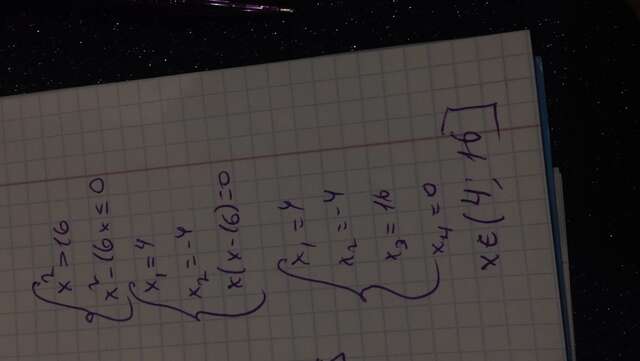 x² > 16
x² - 16x ≤ 0
x₁ = 4
x₂ = -4
x(x-16) = 0
x₁ = 4
x₂ = -4
x₃ = 16
x₄ = 0
x ∈ (4; 16]